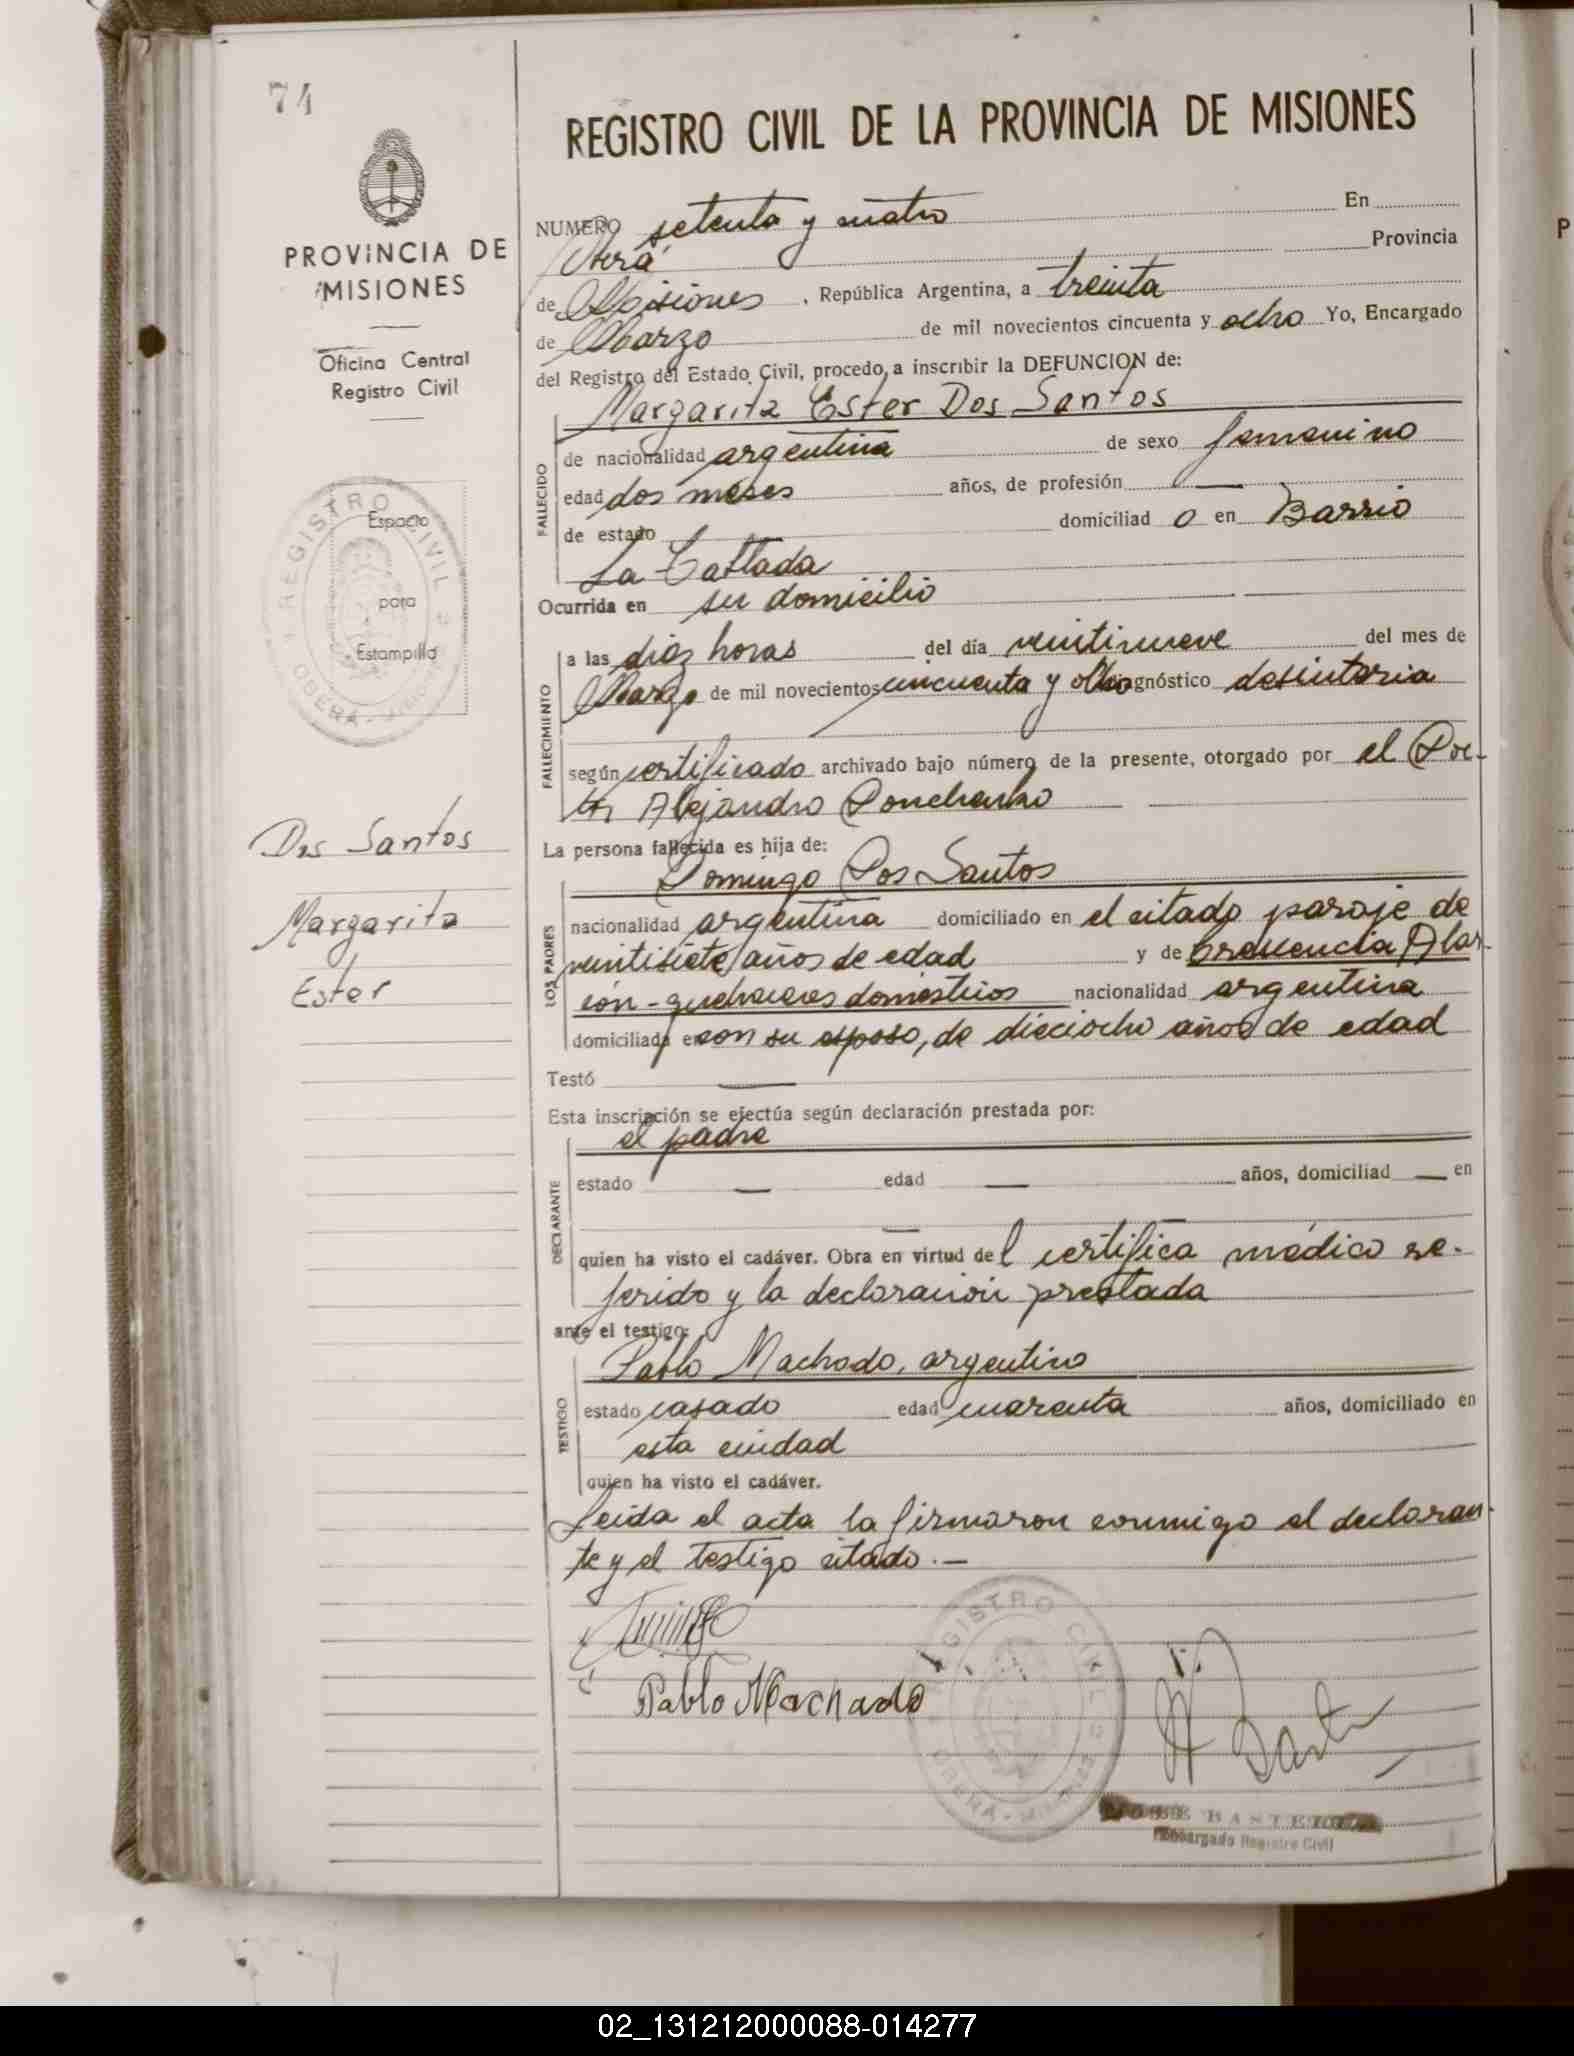 74
PROVINCIA DE
MISIONES
Oficina Central
Registro Civil
REGISTRO CIVIL
Espacio
para
Estampilla
OBERA - MISIONES
Dos Santos
Margarita
Ester
REGISTRO CIVIL DE LA PROVINCIA DE MISIONES
NUMERO setenta y cuatro En
Oberá Provincia
de Misiones, República Argentina, a treinta
de Marzo de mil novecientos cincuenta y ocho Yo, Encargado
del Registro del Estado Civil, procedo a inscribir la DEFUNCION de:
Margarita Ester Dos Santos
FALLECIDO
de nacionalidad argentina de sexo femenino
edad dos meses años, de profesión —
de estado domiciliad o en Barrio
La
Ocurrida en su domicilio
FALLECIMIENTO
a las diez horas del día veintinueve del mes de
Marzo de mil novecientos cincuenta y ocho Diagnóstico desinteria
según certificado archivado bajo número de la presente, otorgado por el Doc-
tor Alejandro
La persona fallecida es hija de:
Domingo Dos Santos
LOS PADRES
nacionalidad argentina domiciliado en el citado paraje de
veintisiete años de edad y de Alar-
cón - quehaceres domésticos nacionalidad argentina
domiciliada en con su esposo, de dieciocho años de edad
Testó —
Esta inscripción se efectúa según declaración prestada por:
el padre
DECLARANTE
estado — edad — años, domiciliad — en
—
quien ha visto el cadáver. Obra en virtud del certifica médico re-
ferido y la declaración prestada
ante el testigo:
Pablo Machado, argentino
TESTIGO
estado casado edad cuarenta años, domiciliado en
esta ciudad
quien ha visto el cadáver.
Leida el acta la firmaron conmigo el declaran-
te y el testigo citado.—
Pablo Machado
REGISTRO CIVIL
OBERA - MISIONES
JOSE
Encargado Registro Civil
P
02_131212000088-014277